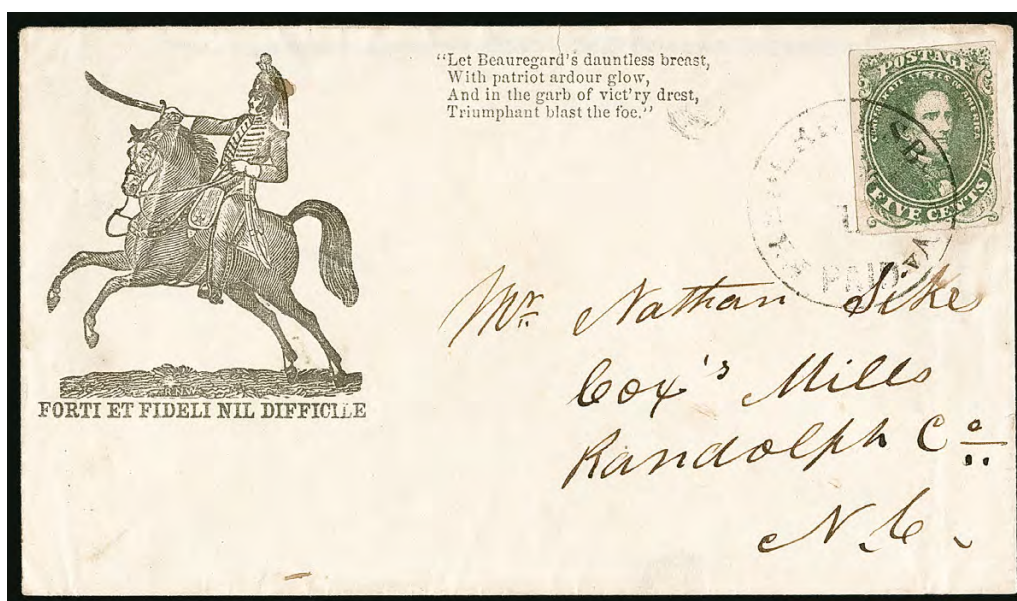 "Let Beauregard's dauntless breast,
With patriot ardour glow,
And in the garb of vict'ry drest,
Triumphant blast the foe."
POSTAGE
CONFEDERATE STATES OF AMERICA
FIVE CENTS
VA.
PAID
FORTI ET FIDELI NIL DIFFICILE
Mr. Nathan
Cox's Mills
Randolph Co.
N.C.